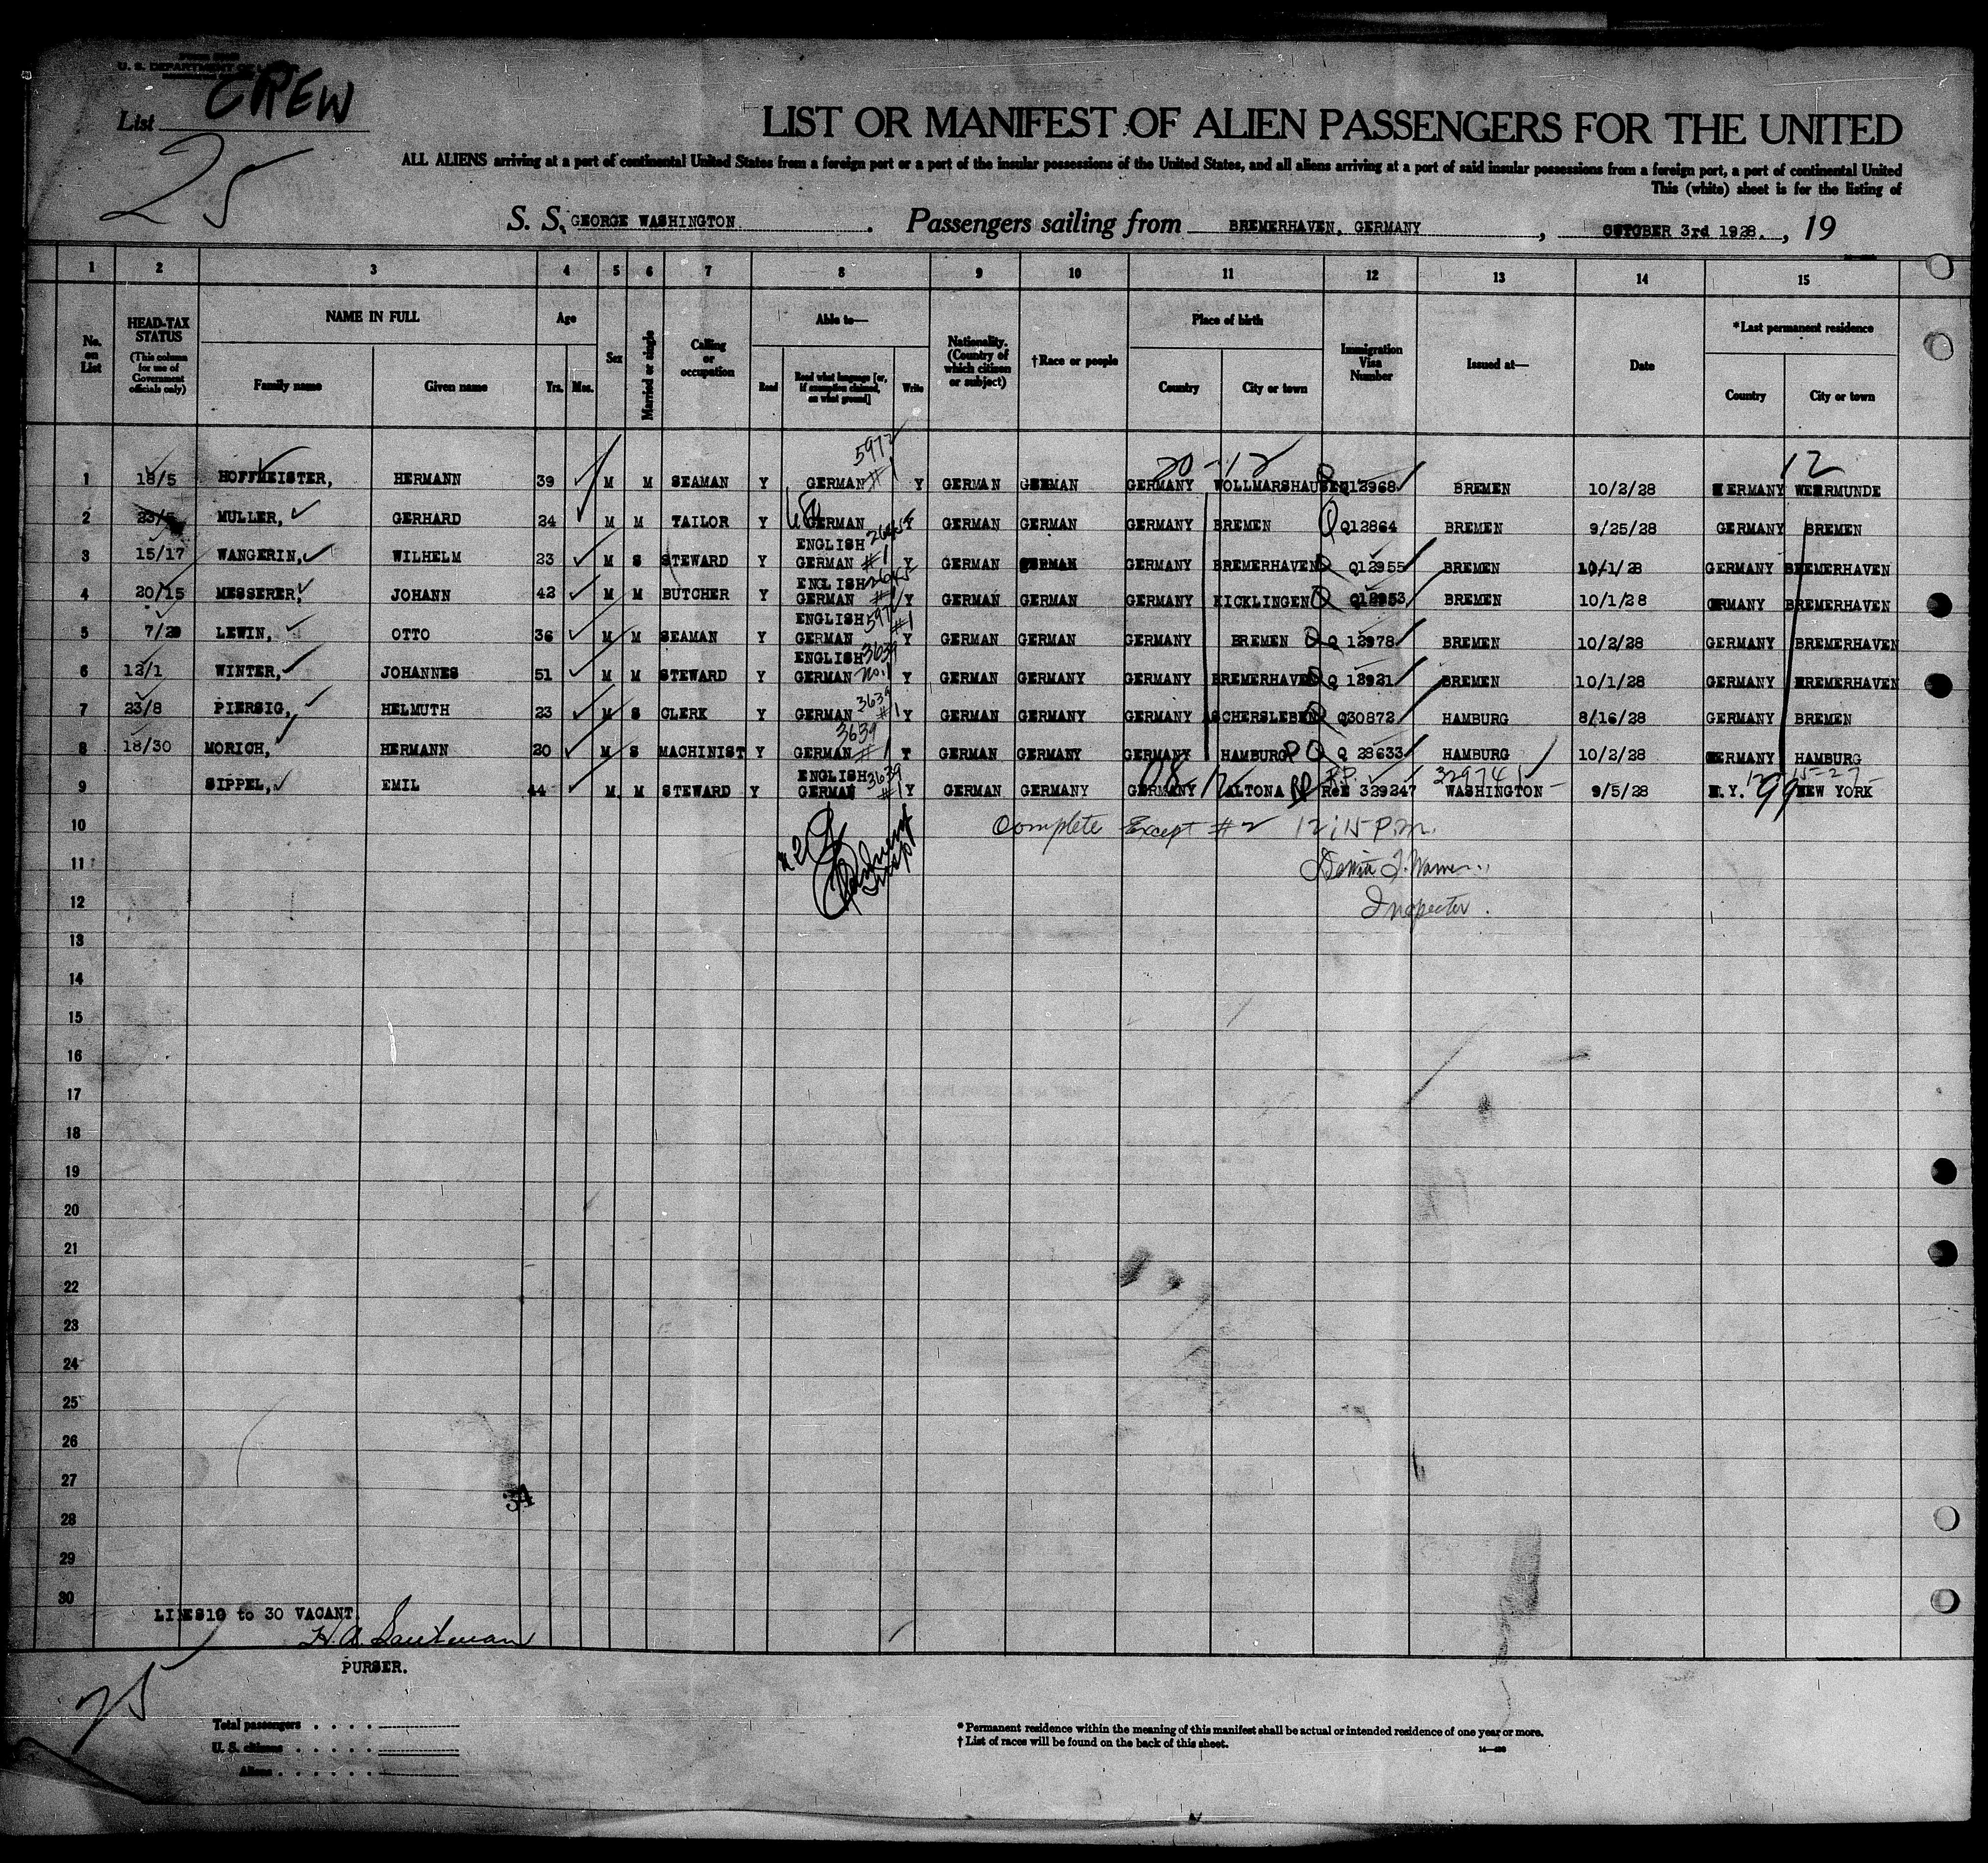 U. S. DEPARTMENT OF LABOR
CREW
List
25
LIST OR MANIFEST OF ALIEN PASSENGERS FOR THE UNITED
ALL ALIENS arriving at a port of continental United States from a foreign port or a port of the insular possessions of the United States, and all aliens arriving at a port of said insular possessions from a foreign port, a port of continental United
This (white) sheet is for the listing of
S. S. GEORGE WASHINGTON. Passengers sailing from BREMERHAVEN, GERMANY, OCTOBER 3rd 1928., 19
1 2 3 4 5 6 7 8 9 10 11 12 13 14 15
No. on List
HEAD-TAX STATUS (This column for use of Government officials only)
NAME IN FULL
Family name Given name
Age
Yrs. Mos.
Sex
Married or single
Calling or occupation
Able to—
Read Read what language [or, if exemption claimed, on what ground] Write
Nationality. (Country of which citizen or subject)
†Race or people
Place of birth
Country City or town
Immigration Visa Number
Issued at—
Date
*Last permanent residence
Country City or town
5972 20-12 12
1 18/5 HOFFMEISTER, HERMANN 39 M M SEAMAN Y GERMAN #1 Y GERMAN GERMAN GERMANY WOLLMARSHAUSEN Q12968 BREMEN 10/2/28 GERMANY WESRMUNDE
2 23/5 MULLER, GERHARD 24 M M TAILOR Y GERMAN Y GERMAN GERMAN GERMANY BREMEN Q12864 BREMEN 9/25/28 GERMANY BREMEN
3 15/17 WANGERIN, WILHELM 23 M S STEWARD Y ENGLISH GERMAN #1 Y GERMAN GERMAN GERMANY BREMERHAVEN Q12955 BREMEN 10/1/28 GERMANY BREMERHAVEN
4 20/15 MESSERER, JOHANN 42 M M BUTCHER Y ENGLISH GERMAN #1 Y GERMAN GERMAN GERMANY KICKLINGEN Q12953 BREMEN 10/1/28 GRMANY BREMERHAVEN
5 7/29 LEWIN, OTTO 36 M M SEAMAN Y ENGLISH 5972 GERMAN #1 Y GERMAN GERMAN GERMANY BREMEN Q 12978 BREMEN 10/2/28 GERMANY BREMERHAVEN
6 12/1 WINTER, JOHANNES 51 M M STEWARD Y ENGLISH 3639 GERMAN no. 1 Y GERMAN GERMANY GERMANY BREMERHAVEN Q 12921 BREMEN 10/1/28 GERMANY BREMERHAVEN
7 23/8 PIERSIG, HELMUTH 23 M S CLERK Y GERMAN 3639 #1 Y GERMAN GERMANY GERMANY SCHERSLEBEN Q30872 HAMBURG 8/16/28 GERMANY BREMEN
8 18/30 MORICH, HERMANN 20 M S MACHINIST Y 3639 GERMAN #1 Y GERMAN GERMANY GERMANY HAMBURG Q 28633 HAMBURG 10/2/28 GERMANY HAMBURG
9 SIPPEL, EMIL 44 M M STEWARD Y ENGLISH 3639 GERMAN #1 Y GERMAN GERMANY GERMANY ALTONA R.P. ReE 329247 WASHINGTON 9/5/28 N.Y. 99 NEW YORK
10 Complete Except #2 12:15 P.m.
11
12 Inspector.
13
14
15
16
17
18
19
20
21
22
23
24
25
26
27
34
28
29
30
LINES10 to 30 VACANT.
PURSER.
25
Total passengers
U. S. citizens
Aliens
* Permanent residence within the meaning of this manifest shall be actual or intended residence of one year or more.
† List of races will be found on the back of this sheet.